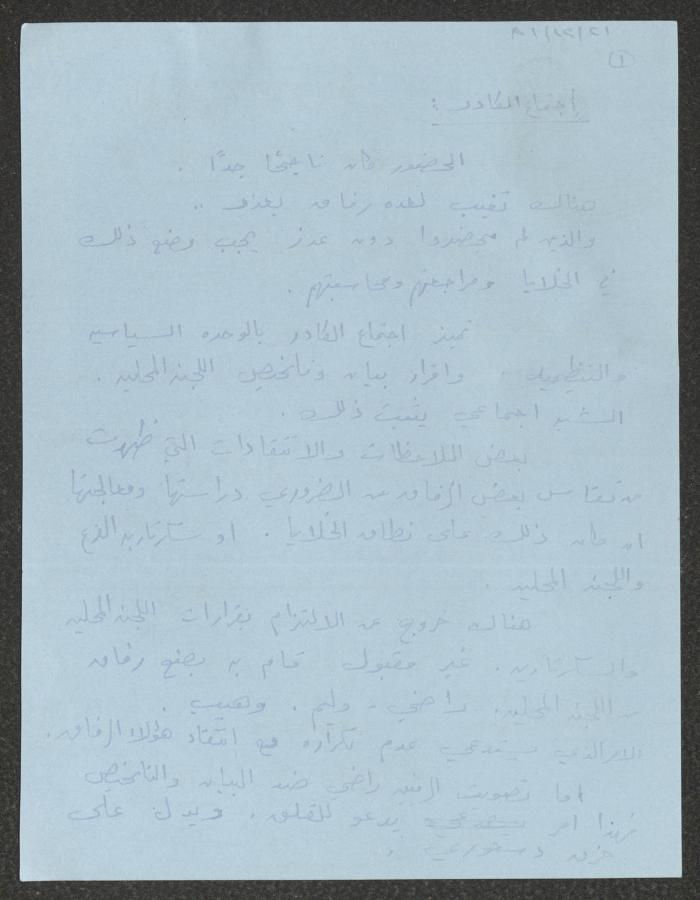 ٨١/١٢/٢١
(١)
إجتماع الكادر :
الحضور كان ناجحًا جدًا .
هنالك تغيب لعده رفاق بعذر ..
والذين لم يحضروا دون عذر يجب وضع ذلك
في الخلايا ومراجعتهم ومحاسبتهم .
تميز اجتماع الكادر بالوحده السياسيه
والتنظيميه . واقرار بيان وتلخيص اللجنه المحليه .
الشبه اجماعي يثبت ذلك .
بعض الملاحظات والانتقادات التي ظهرت
من بعض الرفاق من الضروري دراستها ومعالجتها
ان كان ذلك على نطاق الخلايا . او سكرتاريه الفرع
واللجنه المحليه .
هنالك خروج عن الالتزام بقرارات اللجنه المحليه
والسكرتاريه . غير مقبول قام به بضع رفاق
من اللجنه المحليه . راضي - وليم . وهيب .
الامر الذي يستدعي عدم تكراره مع انتقاد هؤلاء الرفاق .
اما تصويت الرفيق راضي ضد البيان والتلخيص
فهذا امر يستدعي يدعو للقلق . ويدل على
خرق دستوري .